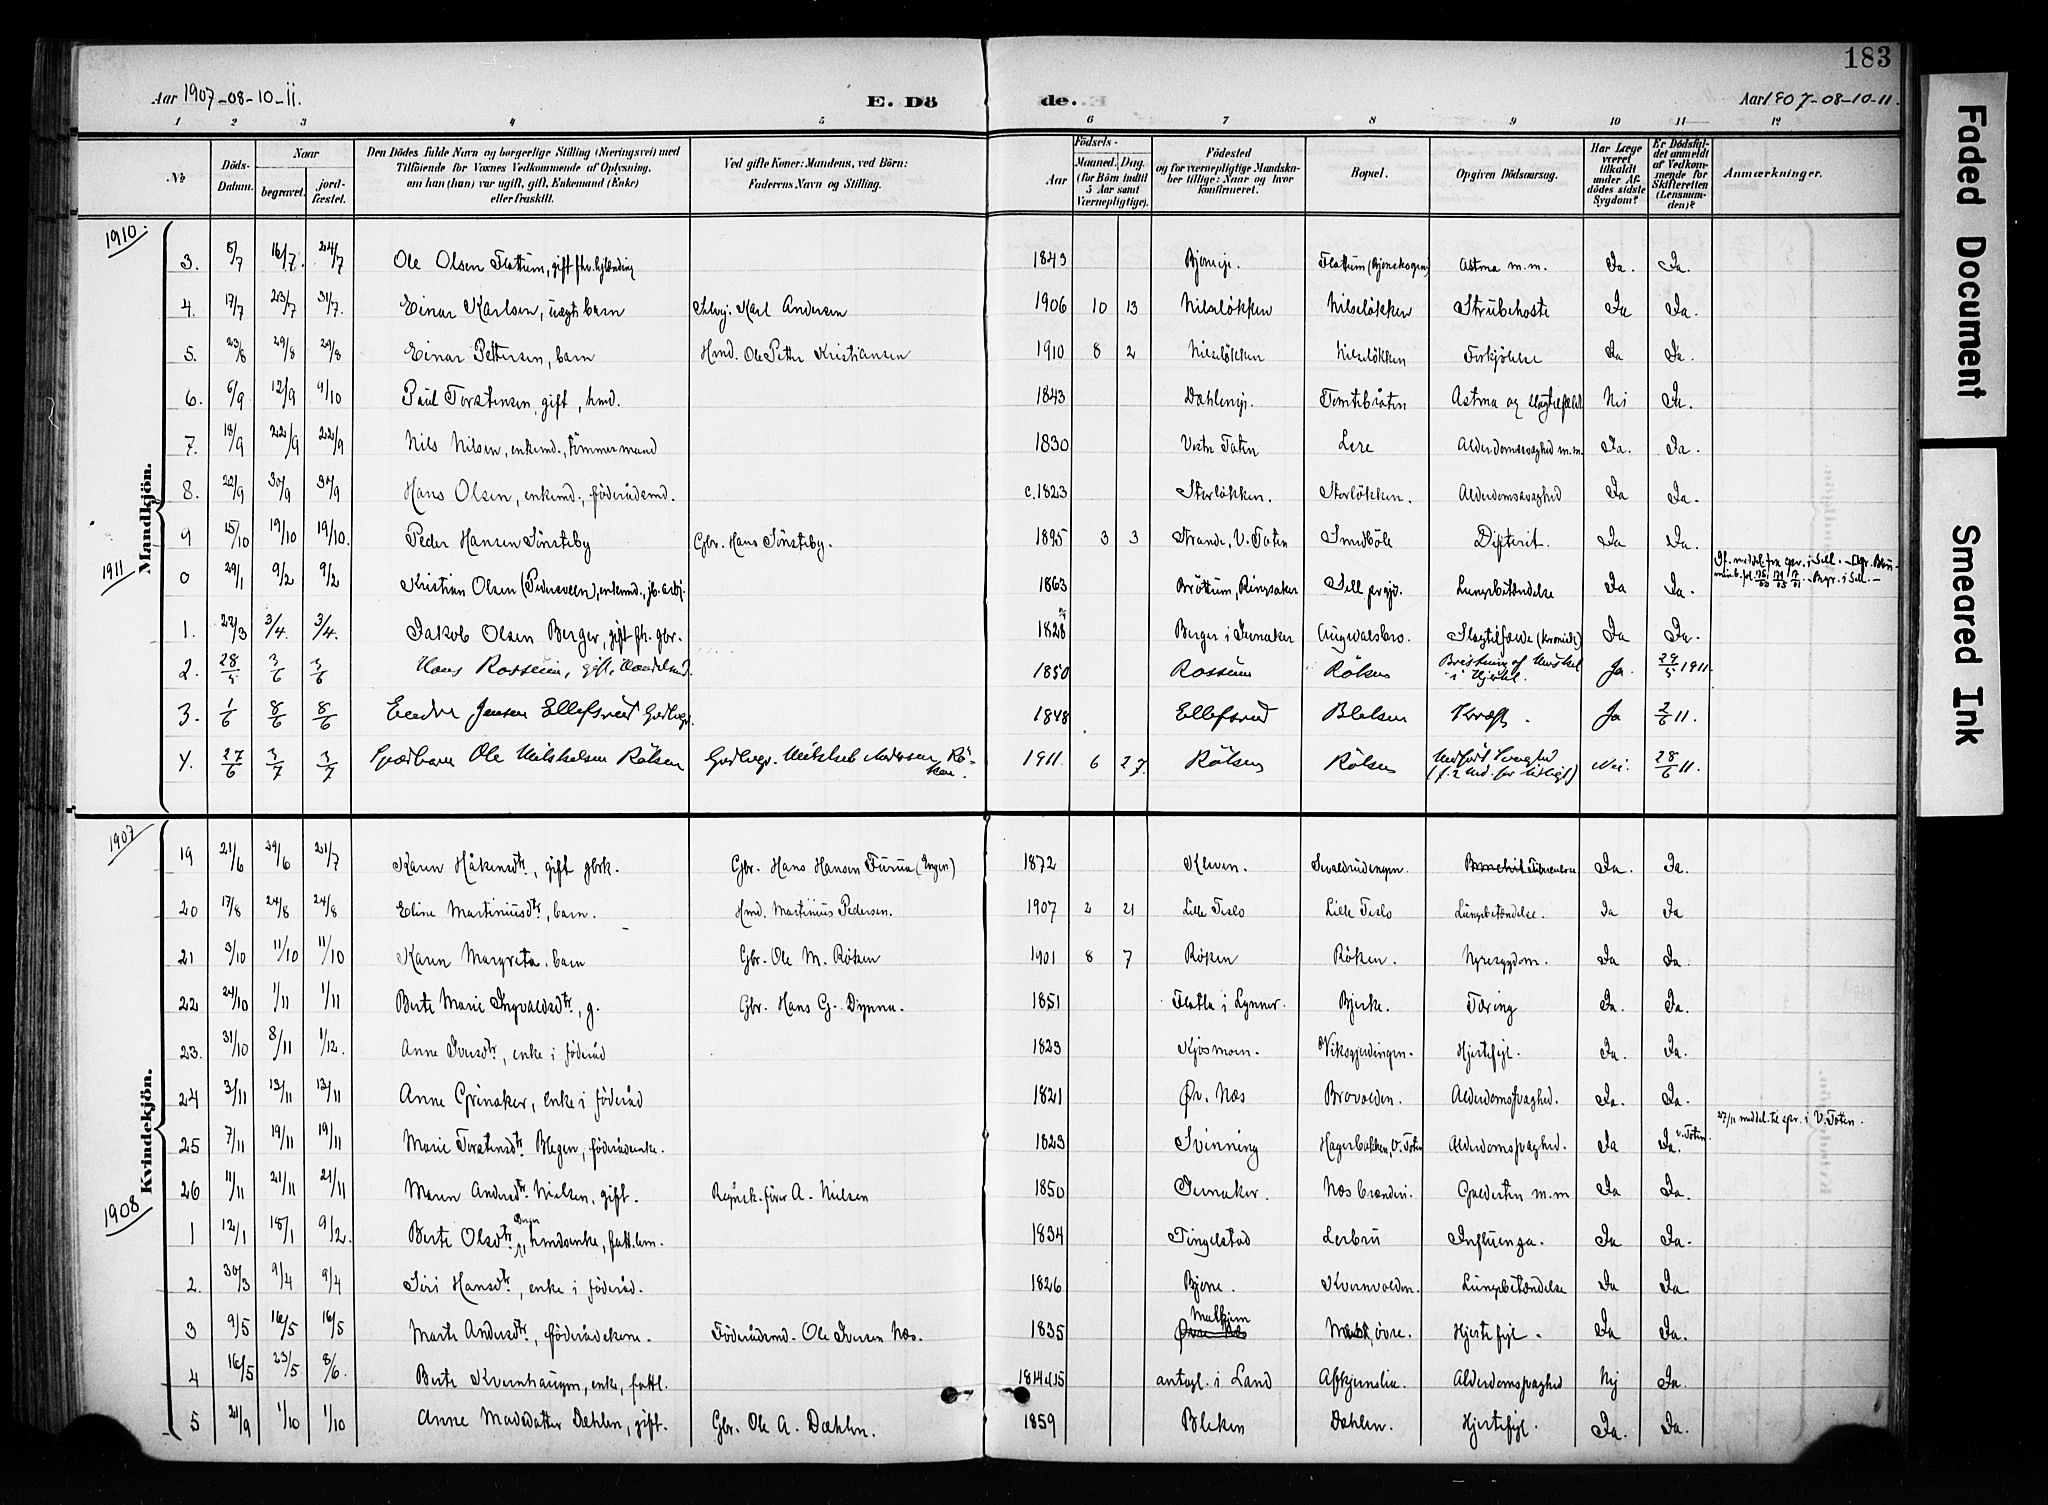 183
Aar 1907-08-10-11. E. Dö de. Aar 1907-08-10-11.
1 2 3 4 5 6 7 8 9 10 11 12
№ Döds-Datum. Naar begravet. jord-fæstet. Den Dödes fulde Navn og borgerlige Stilling (Næringsvei) med Tilföiende for Voxnes Vedkommende af Oplysning, om han (hun) var ugift, gift, Enkemand (Enke) eller fraskilt. Ved gifte Koner: Mandens, ved Börn: Faderens Navn og Stilling. Födsels- Aar Maaned. Dag. (for Börn indtil 5 Aar samt Værnepligtige). Födested og for værnepligtige Mandskaber tillige: Naar og hvor konfirmeret. Bopæl. Opgiven Dödsaarsag. Har Læge været tilkaldt under Afdödes sidste Sygdom? Er Dödsfaldet anmeldt af Vedkommende for Skifteretten (Lensmanden)? Anmærkninger.
Mandkjön.
1910.
3. 8/7 16/7. 24/7 Ole Olsen Flattum, gift 1843 Flattum Astma m.m. Ja. Ja.
4. 17/7 23/7 31/7. Einar Karlsen, uægte barn Karl Andersen 1906 10 13 Nilsløkken Nilsløkken Strubehoste Ja Ja.
5. 23/8 29/8 29/8 Einar Pettersen, barn Hmd. Ole Petter Kristiansen 1910 8 2 Nilsløkken Nilsløkken Forkjølelse Ja Ja.
6. 6/9 12/9 9/10 Paul Torstensen, gift, hmd. 1843 Tomtebråten Astma og slagtilfælde Nei Ja.
7. 18/9 22/9 22/9 Nils Nilsen, enkemd., tømmermand 1830 Vestre Toten Lere Alderdomssvaghed m.m. Ja. Ja.
8. 22/9 30/9 30/9 Hans Olsen, enkemd., föderådsmd. c. 1823 Storløkken. Storløkken. Alderdomssvaghed Ja Ja.
9 15/10 19/10 19/10. Peder Hansen Sønsteby Gbr. Hans Sønsteby. 1895 3 3 Strande, V. Toten Smedböle Difterit. Ja Ja.
1911
0 29/1 9/2 9/2 Kristian Olsen (Pedersveen), enkemd., 1863 Brøttum, Ringsaker Lungebetændelse Ja Ja.
1. 22/3 3/4. 3/4. Jakob Olsen Berger, gift fh. gbr. 1828 Berger i Jevnaker Slagtilfælde (kronisk) Ja Ja.
2. 28/5 3/6 3/6 Hans Rossum, gift, Handelsmd. 1850 Rossum Röken Bristning af Muskel i Hjertet. Ja. 29/5 1911.
3. 1/6 8/6 8/6 Jensen Ellefsrud Gardbgr. 1848 Ellefsrud Bleken Kræft. Ja 2/6 11.
4. 27/6 3/7 3/7 Spædbarn Ole Röken Gardbgr. Röken. 1911. 6 27. Röken Röken Medfödt Svaghed (f. 2 Md. for tidligt) Nei. 28/6 11.
Kvindekjön.
1907
19 21/6 29/6 21/7 Karen Håkensdtr, gift gbrk. Gbr. Hans Hansen Furua (Engen) 1872 Kleven. Tuberculose Ja. Ja.
20 17/8 24/8 24/8 Eline Martiniusdtr, barn. Hmd. Martinius Pedersen. 1907 2 21 Lille Teslo Lille Teslo Lungebetændelse. Ja Ja
21 3/10 11/10 11/10 Karen Margreta, barn Gbr. Ole M. Røken 1901 8 7 Røken Røken. Nyresygdom. Ja Ja.
22 24/10 1/11 1/11 Berte Marie Ingvaldsdtr, g. Gbr. Hans G. Dynna. 1851 Flatla i Lynner. Bjerke. Tæring Ja. Ja.
23. 31/10 8/11 1/12. Anne Iversdtr, enke i föderåd 1823 Kjosmoen. Viksgjerdingen. Hjertefejl. Ja. Ja.
24 3/11 13/11 13/11 Anne Grinaker, enke i föderåd 1821 Øv. Næs Brovolden. Alderdomssvaghed. Ja. Ja.
25 7/11 19/11 19/11 Marie Torstensdtr Blegen, föderådsenke. 1823 Svinning Hagerbakken, V. Toten Alderdomssvaghed. Ja Ja. V. Toten. 27/11 meddelt til spr. i V. Toten.
26 11/11 21/11 21/11 Maren Andersdtr. Nielsen, gift. A. Nielsen 1850 Jevnaker. Næs brænderi. Galdesten m.m Ja Ja.
1908
1 12/1 18/1 9/2. Berte Olsdtr. hmdsenke, fatt.lem. 1834 Tingelstad Lerbru Influenza. Ja Ja.
2. 30/3 9/4 9/4 Siri Hansdtr, enke i föderåd. 1826 Bjone. Kvernvolden. Lungebetændelse Ja Ja
3 9/5 16/5 16/5 Marte Andersdtr, föderådskone. Föderådsmd. Ole Iversen Næs. 1835 øvre. Hjertefejl. Ja Ja.
4 16/5 23/5 8/6. Berte Kvernhaugen, enke, fattl. 1814 à 15 antagl. i Land Alderdomssvaghed Nej Ja.
5 21/9 1/10 1/10 Anne Madsdatter Dæhlen, gift. Gbr. Ole A. Dæhlen. 1859 Bleken Dæhlen. Hjertefejl. Ja. Ja.
Faded Document
Smeared Ink